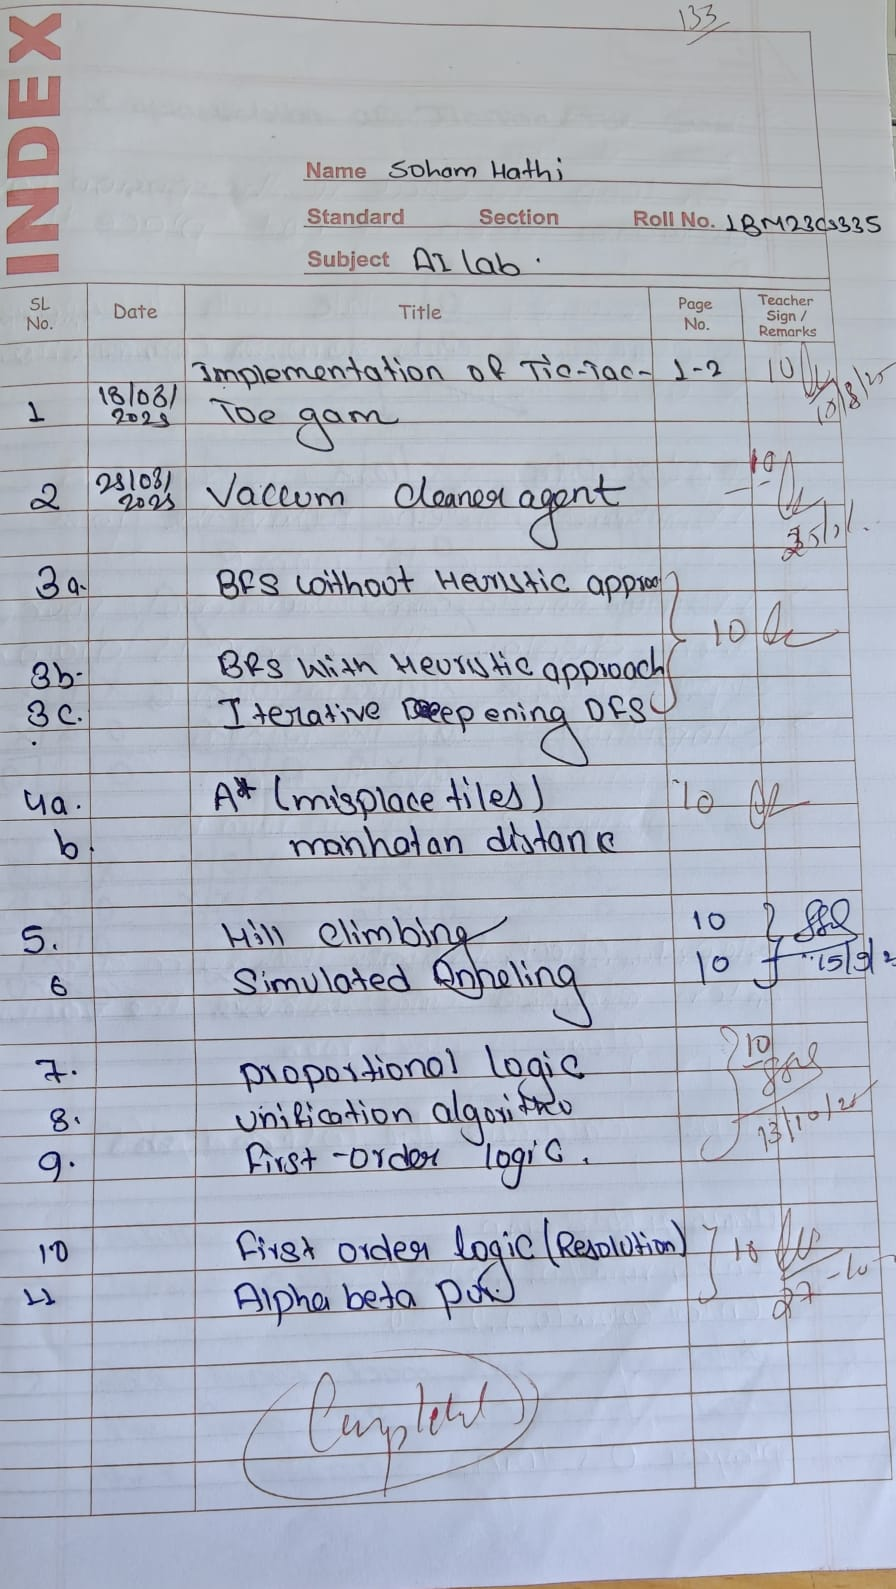 133
INDEX
Name Soham Hathi
Standard Section Roll No. 1BM23CS335
Subject AI lab.
SL No. Date Title Page No. Teacher Sign / Remarks
Implementation of Tic-Tac- 1-2 10
1 18/08/2025 Toe gam 18/8/25
2 25/08/2025 Vaccum cleaner agent 10
3a. BFS without Heuristic approa
10
3b. BFS With Heuristic approach
3c. Iterative Deepening DFS
4a. A* (misplace tiles) 10
b. manhatan distance
5. Hill climbing 10
6 Simulated Anheling 10 15/9/2
7. propostional logic 10
8. unification algorithm
9. First-order logic. 13/10/25
10 First order logic (Resolution) 10
11 Alpha beta 27-10-
Completed